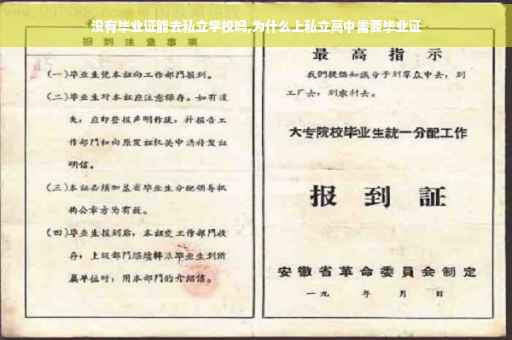 没有毕业证能去私立学校吗,为什么上私立高中需要毕业证
报到注意事项
(一)毕业生凭本证向工作部门报到。
(二)毕业生对本证应注意保存。如有遗
失,应即登报声明作废,并报告工
作部门和向原发证机关申请补发证
明信。
(三)本证必须加盖省毕业生分配领导机
构公章方为有效。
(四)毕业生报到后,本证交工作部门收
存;上级部门
毕业生到所
属单位时,用本部门的介绍信。
最高指示
我们提倡知识分子到群众中去,到
工厂去,到农村去。
大专院校毕业生统一分配工作
报到证
安徽省革命委员会制定
一九 年 月 日